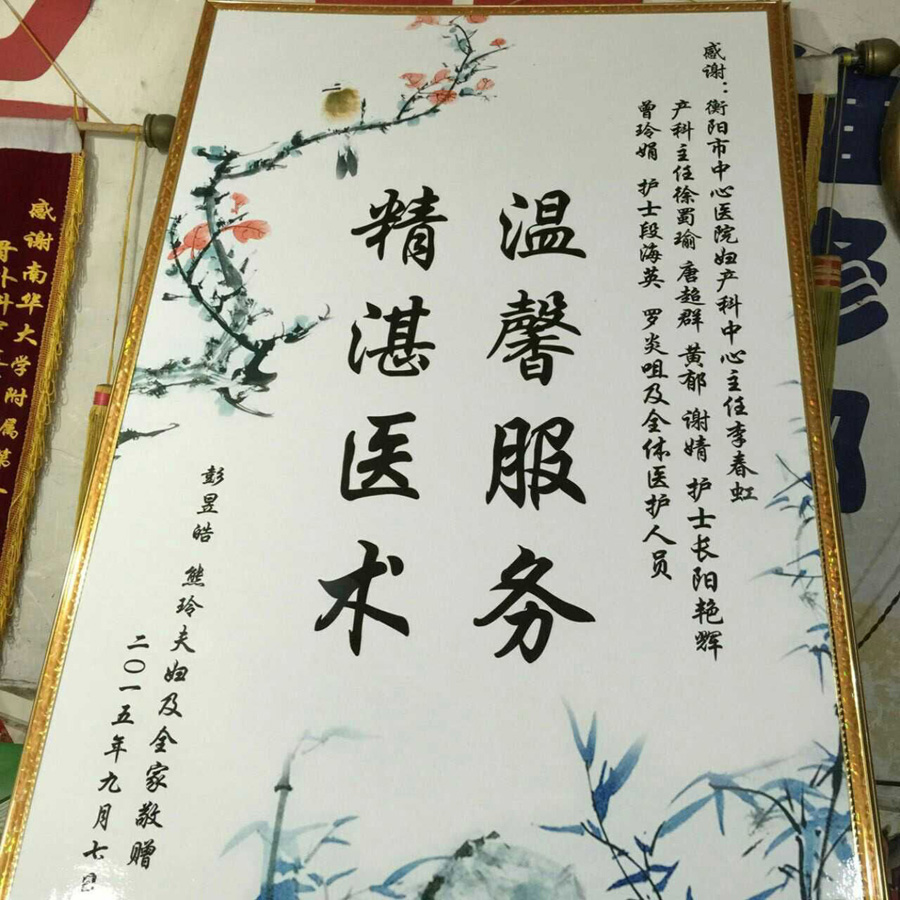 感谢：衡阳市中心医院妇产科中心主任李春虹
产科主任徐蜀瑜 唐超群 黄郁 谢婧 护士长阳艳辉
曾玲娟 护士段海英 罗炎咀及全体医护人员
温馨服务
精湛医术
彭昱皓 熊玲夫妇及全家敬赠
二〇一五年九月七日
感谢南华大学附属第一
骨外科
修